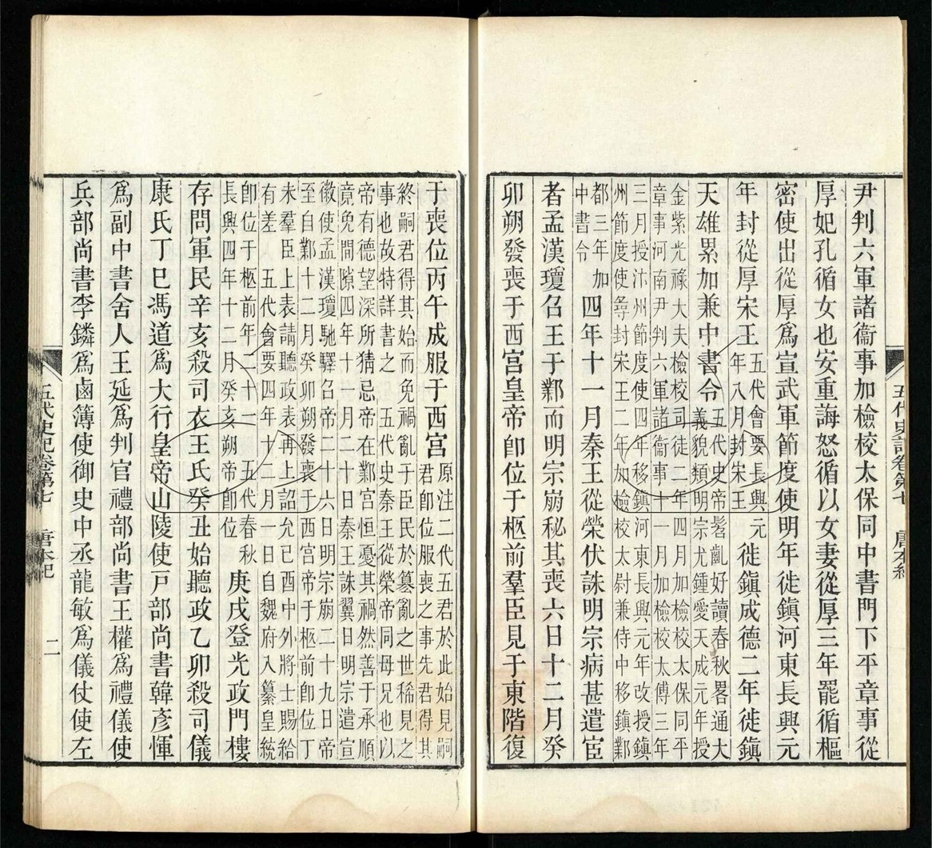 尹判六軍諸衞事加檢校太保同中書門下平章事從
厚妃孔循女也安重誨怒循以女妻從厚三年罷循樞
密使出從厚爲宣武軍節度使明年徙鎭河東長興元
年封從厚宋王
五代會要長興元
年八月封宋王
徙鎭成德二年徙鎭
天雄累加兼中書令
五代史帝髫齓好讀春秋畧通大
義貌類明宗尤鍾愛天成元年授
金紫光祿大夫檢校司徒二年四月加檢校太保同平
章事河南尹判六軍諸衞事十一月加檢校太傅三年
三月授汴州節度使四年移鎭河東長興元年改授鎭
州節度使尋封宋王二年加檢校太尉兼侍中移鎭鄴
都三年加
中書令
四年十一月秦王從榮伏誅明宗病甚遣宦
者孟漢瓊召王于鄴而明宗崩秘其喪六日十二月癸
卯朔發喪于西宮皇帝卽位于柩前羣臣見于東階復
五代史記卷第七 唐本紀
于喪位丙午成服于西宮
原注二代五君於此始見嗣
君卽位服喪之事先君得其
終嗣君得其始而免禍亂于臣民於篡亂之世稀見之
事也故特詳書之 五代史秦王從榮帝同母兄也以
帝有德望深所猜忌帝在鄴宮恒憂其禍然善于承順
竟免間隙四年十一月二十日秦王誅翼日明宗遣宣
徽使孟漢瓊馳驛召帝二十六日明宗崩二十九日帝
至自鄴十二月癸卯朔發喪于西宮帝于柩前卽位丁
未羣臣上表請聽政表再上詔允己酉中外將士賜給
有差 五代會要四年十二月一日自魏府入纂皇統
卽位于柩前年二十一 五代春秋
長興四年十二月癸亥朔帝卽位
庚戌登光政門樓
存問軍民辛亥殺司衣王氏癸丑始聽政乙卯殺司儀
康氏丁巳馮道爲大行皇帝山陵使戸部尚書韓彥惲
爲副中書舍人王延爲判官禮部尚書王權爲禮儀使
兵部尚書李鏻爲鹵簿使御史中丞龍敏爲儀仗使左
五代史記卷第七 唐本紀 二